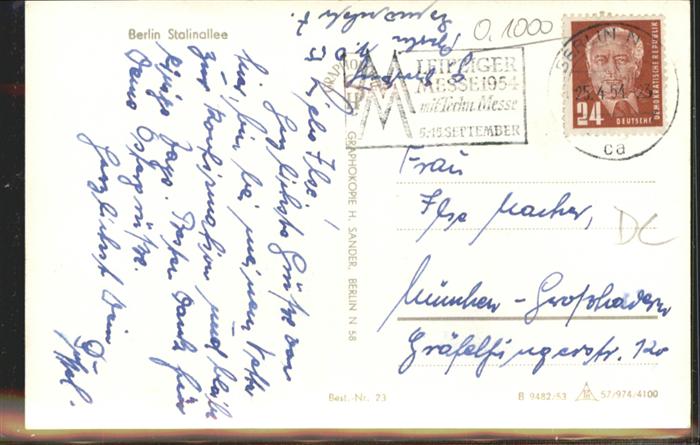 Berlin Stalinallee
0.1000
LEIPZIGER
MESSE 1954
mit Techn. Messe
5.-15. SEPTEMBER
BERLIN N
25.4.54
ca
DEUTSCHE
DEMOKRATISCHE REPUBLIK
24
Liebe Ilse!
Herzlichste Grüße von
hier, bin bei meinem
zur Konfirmation und bleibe
einige Tage. Besten Dank für
Deine Ostergrüße.
Herzlichst Dein
GRAPHOKOPIE H. SANDER, BERLIN N 58
Frau
Ilse Macher,
DC
München-Großhadern
Gräfelfingerstr.
Best.-Nr. 23
B 9482/53
57/974/4100